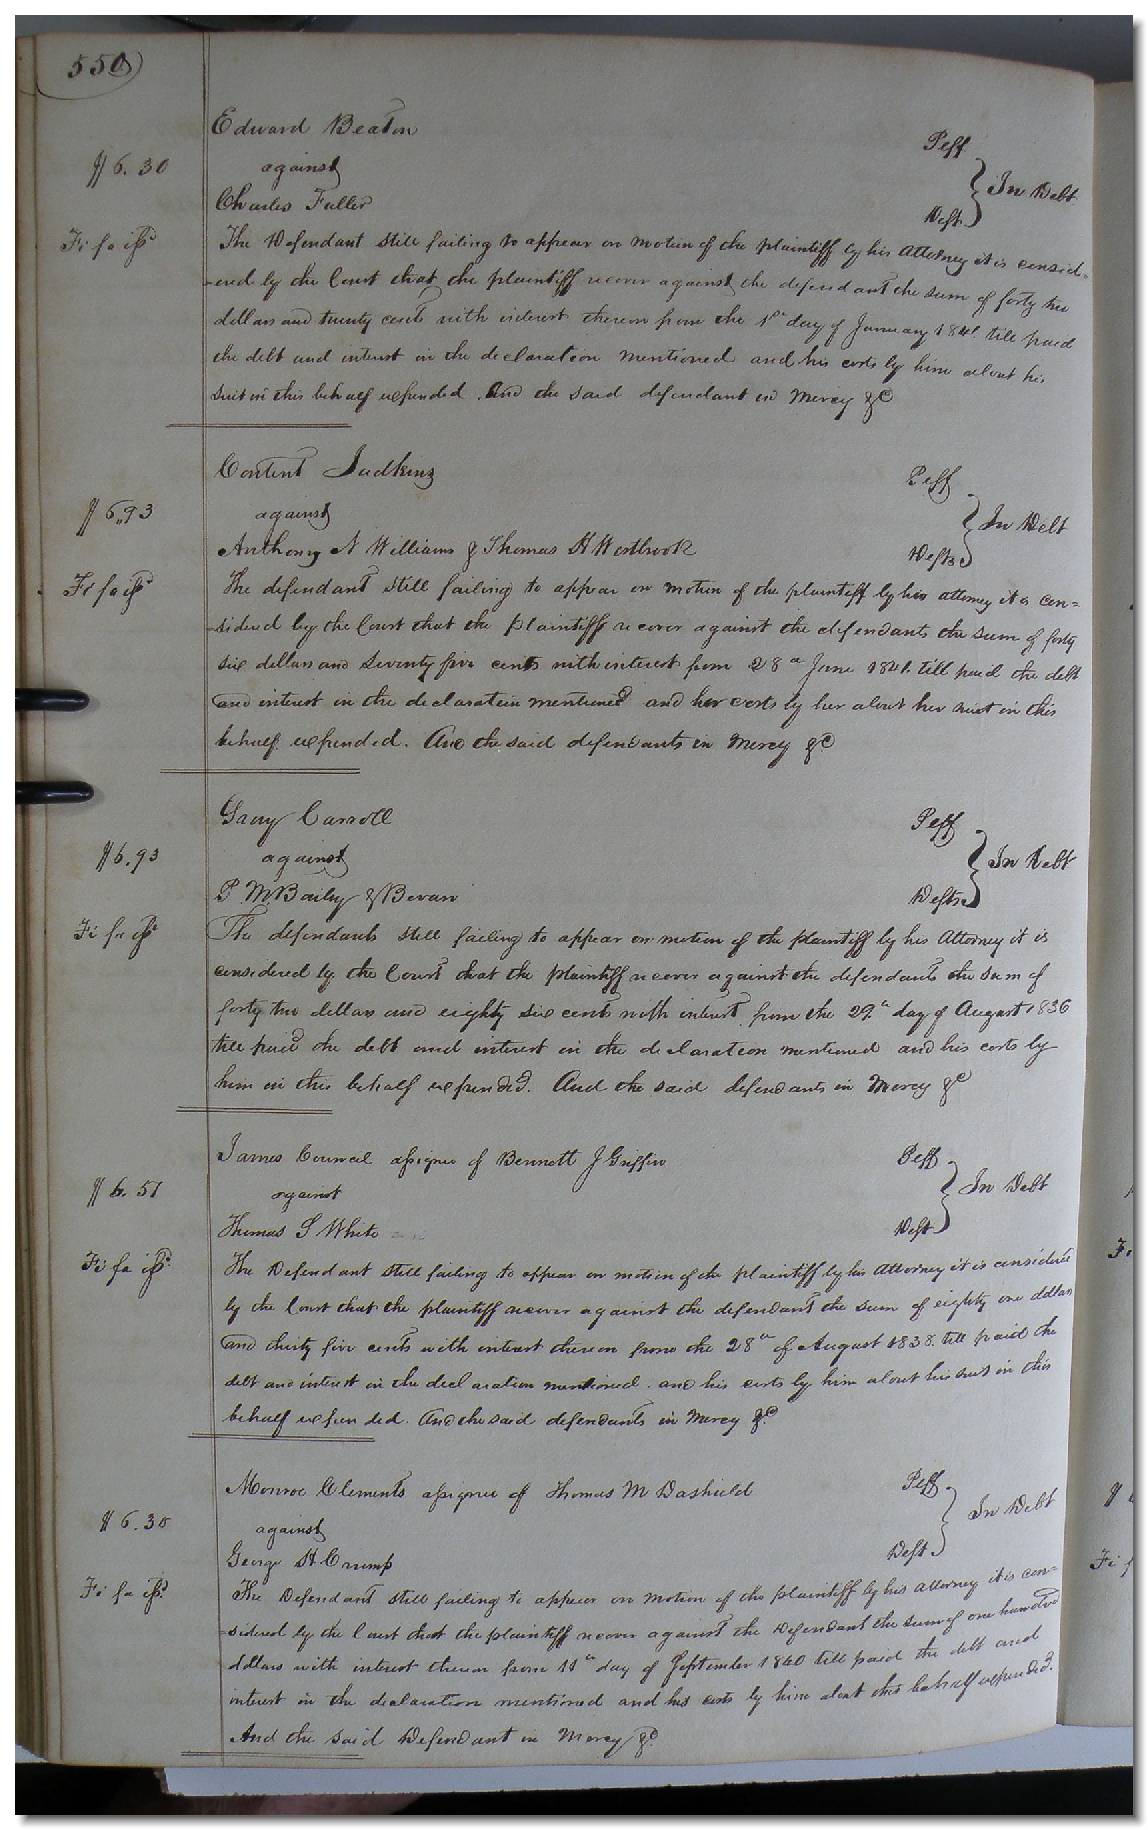 550
Edward Beaton Plff
$6.30 against } In Debt
Charles Fuller Deft
Fi fa issd The Defendant still failing to appear on motion of the plaintiff by his Attorney it is consid=
=ered by the Court that the plaintiff recover against the defendant the sum of forty two
dollars and twenty cents with interest thereon from the 1st day of January 1841 till paid
the debt and interest in the declaration mentioned and his costs by him about his
suit in this behalf expended. And the said defendant in Mercy &c
Content Judkins Plff
$6,,93 against } In Debt
Anthony N Williams & Thomas H Westbrook Defts
Fi fa issd The defendant still failing to appear on motion of the plaintiff by his attorney it is con=
=sidered by the Court that the plaintiff recover against the defendants the sum of forty
six dollars and seventy five cents with interest from 28th June 1841 till paid the debt
and interest in the declaration mentioned and her costs by her about her suit in this
behalf expended. And the said defendants in Mercy &c
Gray Carroll Plff
$6.93 against } In Debt
P McBaily & Bevan Defts
Fi fa issd The defendants still failing to appear on motion of the plaintiff by his Attorney it is
considered by the Court that the plaintiff recover against the defendants the sum of
forty two dollars and eighty six cents with interest from the 29th day of August 1836
till paid the debt and interest in the declaration mentioned and his costs by
him in this behalf expended. And the said defendants in Mercy &c
James Council assignee of Bennett J Griffin Plff
$6.51 against } In Debt
Thomas S White Deft
Fi fa issd The Defendant still failing to appear on motion of the plaintiff by his Attorney it is considered
by the Court that the plaintiff recover against the defendant the sum of eighty one dollars
and thirty five cents with interest thereon from the 28th of August 1838 till paid the
debt and interest in the declaration mentioned and his costs by him about his suit in this
behalf expended. And the said defendants in Mercy &c
Monroe Clements assignee of Thomas M Dashield Plff
$6.30 against } In Debt
George H Crump Deft
Fi fa issd The Defendant still failing to appear on motion of the plaintiff by his attorney it is con=
=sidered by the Court that the plaintiff recover against the Defendant the sum of one hundred
dollars with interest thereon from 11th day of September 1840 till paid the debt and
interest in the declaration mentioned and his costs by him about this behalf expended.
And the said Defendant in Mercy &c